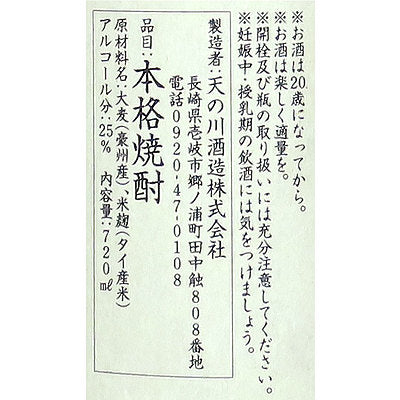 ※お酒は20歳になってから。
※お酒は楽しく適量を。
※開栓及び瓶の取り扱いには充分注意してください。
※妊娠中・授乳期の飲酒には気をつけましょう。
製造者:天の川酒造株式会社
長崎県壱岐市郷ノ浦町田中触808番地
電話0920-47-0108
品目:本格焼酎
原材料名:大麦(豪州産)、米麹(タイ産米)
アルコール分:25% 内容量:720㎖